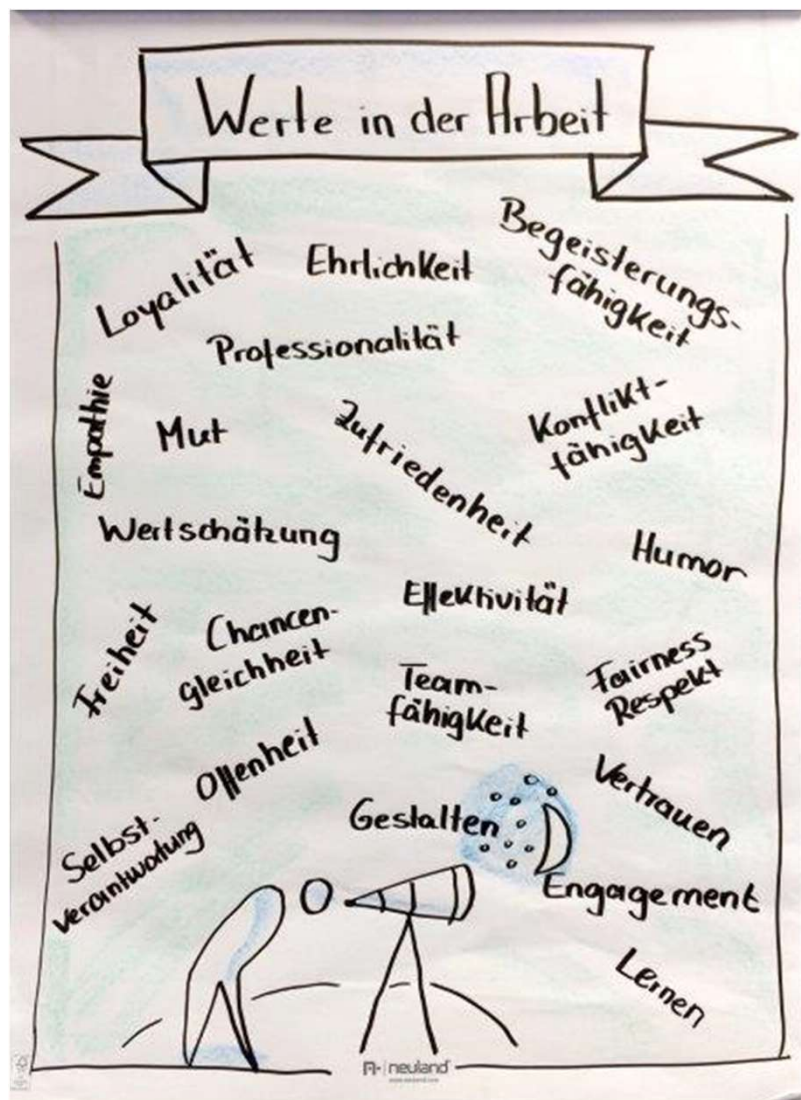 Werte in der Arbeit
Loyalität
Ehrlichkeit
Begeisterungs-
fähigkeit
Professionalität
Empathie
Mut
Zufriedenheit
Konflikt-
fähigkeit
Wertschätzung
Humor
Effektivität
Freiheit
Chancen-
gleichheit
Team-
fähigkeit
Fairness
Respekt
Offenheit
Vertrauen
Gestalten
Selbst-
verantwortung
Engagement
Lernen
neuland